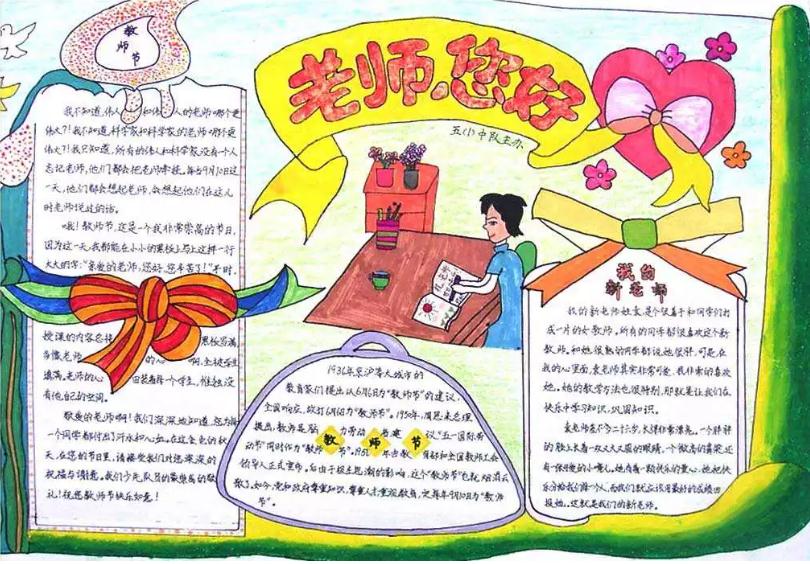 教
师
节
老师,您好
五(1)中队主办
我不知道,伟人 和伟 人的老师哪个更
伟大?!我不知道,科学家和科学家的老师哪个更
伟大?!我只知道,所有的伟人和科学家,没有一个人
忘记老师,他们都会把老师牵挂。每当9月10日这
一天,他们都会想起老师,会想起他们在这儿
时老师说过的话。
哦!教师节,这是一个我非常崇高的节日,
因为这一天,我都能在小小的黑板上写上这样一行
大大的字:"亲爱的老师,您好,您辛苦了!"平时,
授课的内容总
像老师 的心 啊,全被学生
填满。老师的心 里装着每个学生,惟独没
有他自己的空间。
敬爱的老师啊!我们深深地知道,您为每
一个同学都付出了汗水和心血。在这金色的秋
天,在您的节日里,请接受我们对您深深的
祝福与情意。我们少先队员的最崇高的敬
礼!祝您教师节快乐如意!
1931年京沪等大城市的
教育家们提出以6月6日为"教师节"的建议,
全国响应,故订6月6日为"教师节"。1950年,周恩来总理
提出,教师是脑 力劳动 者,建 议"五一国际劳
动节"同时作为"教师 节"。1951 年由教 育部和全国教师工会
教 师 节
的领导人正式宣布。后由于极左思潮的影响,这个"教师节"也就烟消云
散了。如今,党和政府尊重知识,尊重人才,重视教育,定每年9月10日为"教师
节"。
我的
新老师
我的新老师姓袁,是个很善于和同学们打
成一片的女教师,所有的同学都很喜欢这个新
教师。和她很熟的同学都说她很胖,可是,在
我的心里面,袁老师其实非常可爱,我非常的喜欢
她。她的教学方法也很特别,那就是让我们在
快乐中学习知识,巩固知识。
袁老师差不多二十六岁,长得非常漂亮。一个胖胖
的脸上长着一双大大又圆的眼睛,一个微高的鼻梁,还
有一张能说的小嘴儿。她有着一颗快乐的童心,她把快
乐分给我们每个人,而我们就应该用最好的成绩回
报她。这就是我们的新老师。